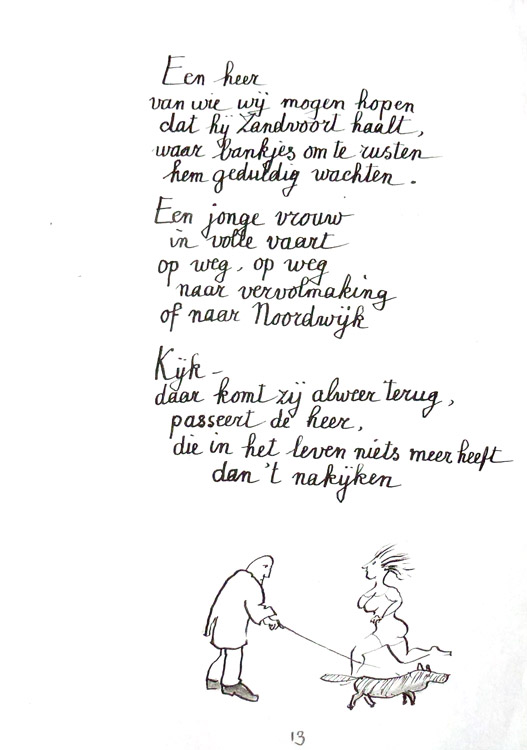 Een heer
van wie wij mogen hopen
dat hij Zandvoort haalt,
waar bankjes om te rusten
hem geduldig wachten.
Een jonge vrouw
in volle vaart
op weg, op weg
naar vervolmaking
of naar Noordwijk
Kijk –
daar komt zij alweer terug,
passeert de heer,
die in het leven niets meer heeft
dan 't nakijken
13